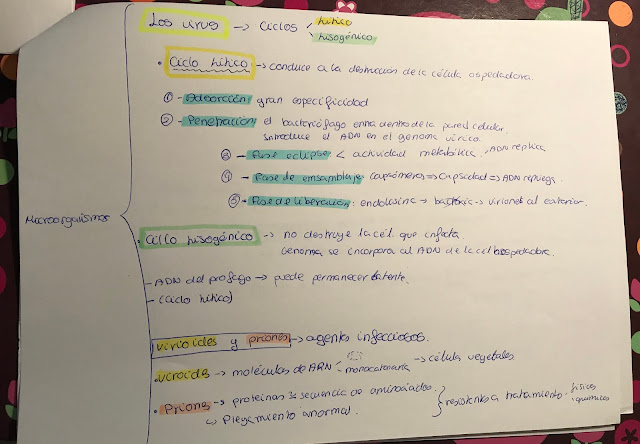 Los virus → Ciclos < Lítico
Lisogénico
Microorganismos
• Ciclo Lítico → conduce a la destrucción de la célula ospedadora.
① - Adsorción: gran especificidad
② - Penetración: el bacteriófago entra dentro de la pared celular.
Introduce el ADN en el genoma vírico.
③ - Fase eclipse < actividad metabólica, ADN replica
④ - Fase de emsamblaje: capsómeros ⇒ Capsidad ⇒ ADN repliega.
⑤ - Fase de liberación: endolisina → bacteria → viriones al exterior.
• Ciclo Lisogénico → no destruye la cél. que infecta.
Genoma se incorpora al ADN de la cél ospedadora.
- ADN del profago → puede permanecer latente.
- (Ciclo Lítico)
Virioides y priones → agentes infecciosos.
• Viroides → moléculas de ARN < monocatenaria → células vegetales
• Priones → proteinas secuencia de aminoácidos. } resistentes a tratamiento físicos
químicos
↳ Plegamiento anormal.